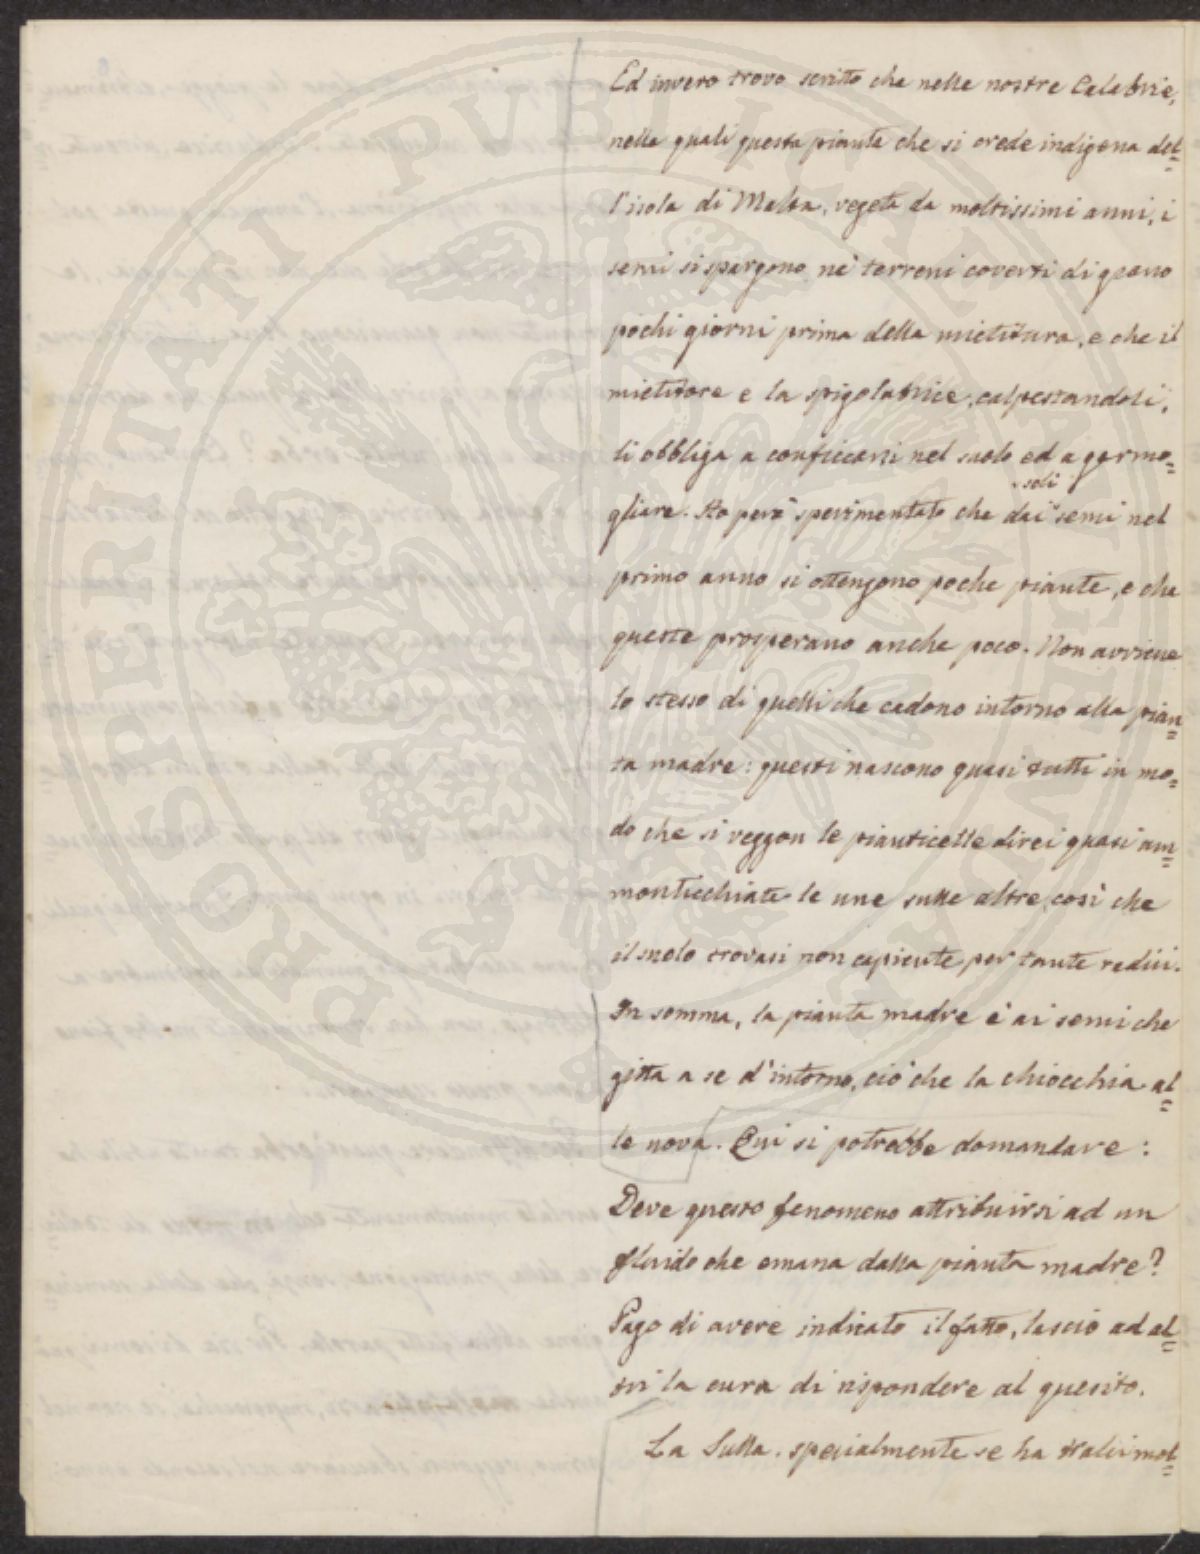 Ed invero trovo scritto che nelle nostre Calabrie,
nelle quali questa pianta che si crede indigena del=
l'isola di Malta, vegeta da moltissimi anni, i
semi si spargono ne' terreni coverti di grano
pochi giorni prima della mietitura, e che il
mietitore e la spigolatrice, calpestandoli,
li obbliga a conficcarsi nel suolo ed a germo=
soli
gliare. Ho però sperimentato che dai semi nel
primo anno si ottengono poche piante, e che
queste prosperano anche poco. Non avviene
lo stesso di quelli che cadono intorno alla pian=
ta madre: questi nascono quasi tutti in mo=
do che si veggon le pianticelle direi quasi am=
monticchiate le une sulle altre, così che
il suolo trovasi non capiente per tante radici.
In somma, la pianta madre è ai semi che
gitta a se d'intorno, ciò che la chiocchia al=
le nova. Qui si potrebbe domandare:
Deve questo fenomeno attribuirsi ad un
fluido che emana dalla pianta madre?
Pago di avere indicato il fatto, lascio ad al=
tri la cura di rispondere al quesito.
La Sulla, specialmente se ha tralci mol=
PROSPERITATI PVBLICAE AVGENDAE